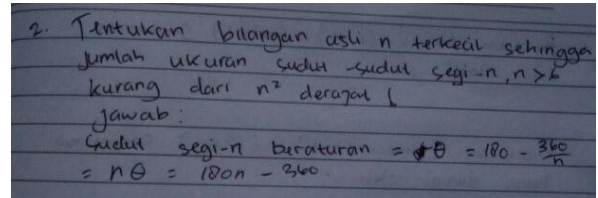 2. Tentukan bilangan asli n terkecil sehingga
jumlah ukuran sudut-sudut segi-n, n > 6
kurang dari n² derajat (
jawab :
Sudut segi-n beraturan = θ = 180 - 360/n
= nθ = 180n - 360.